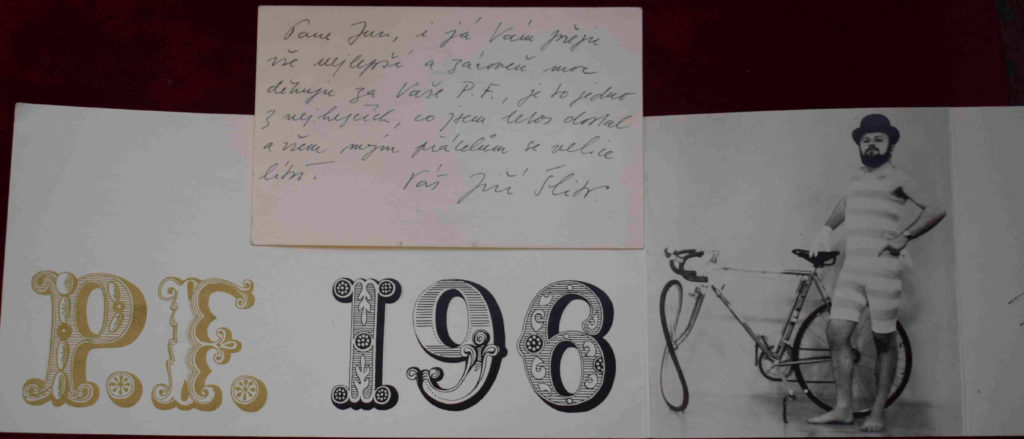 Pane Jun, i já Vám přeju
vše nejlepší a zároveň moc
děkuju za Vaše P.F., je to jedno
z nejhezčích, co jsem letos dostal
a všem mým přátelům se velice
líbí.
Váš Jiří Šlitr.
P.F. 196